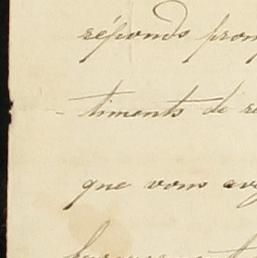 réponds prom
timents de re
que vous avez